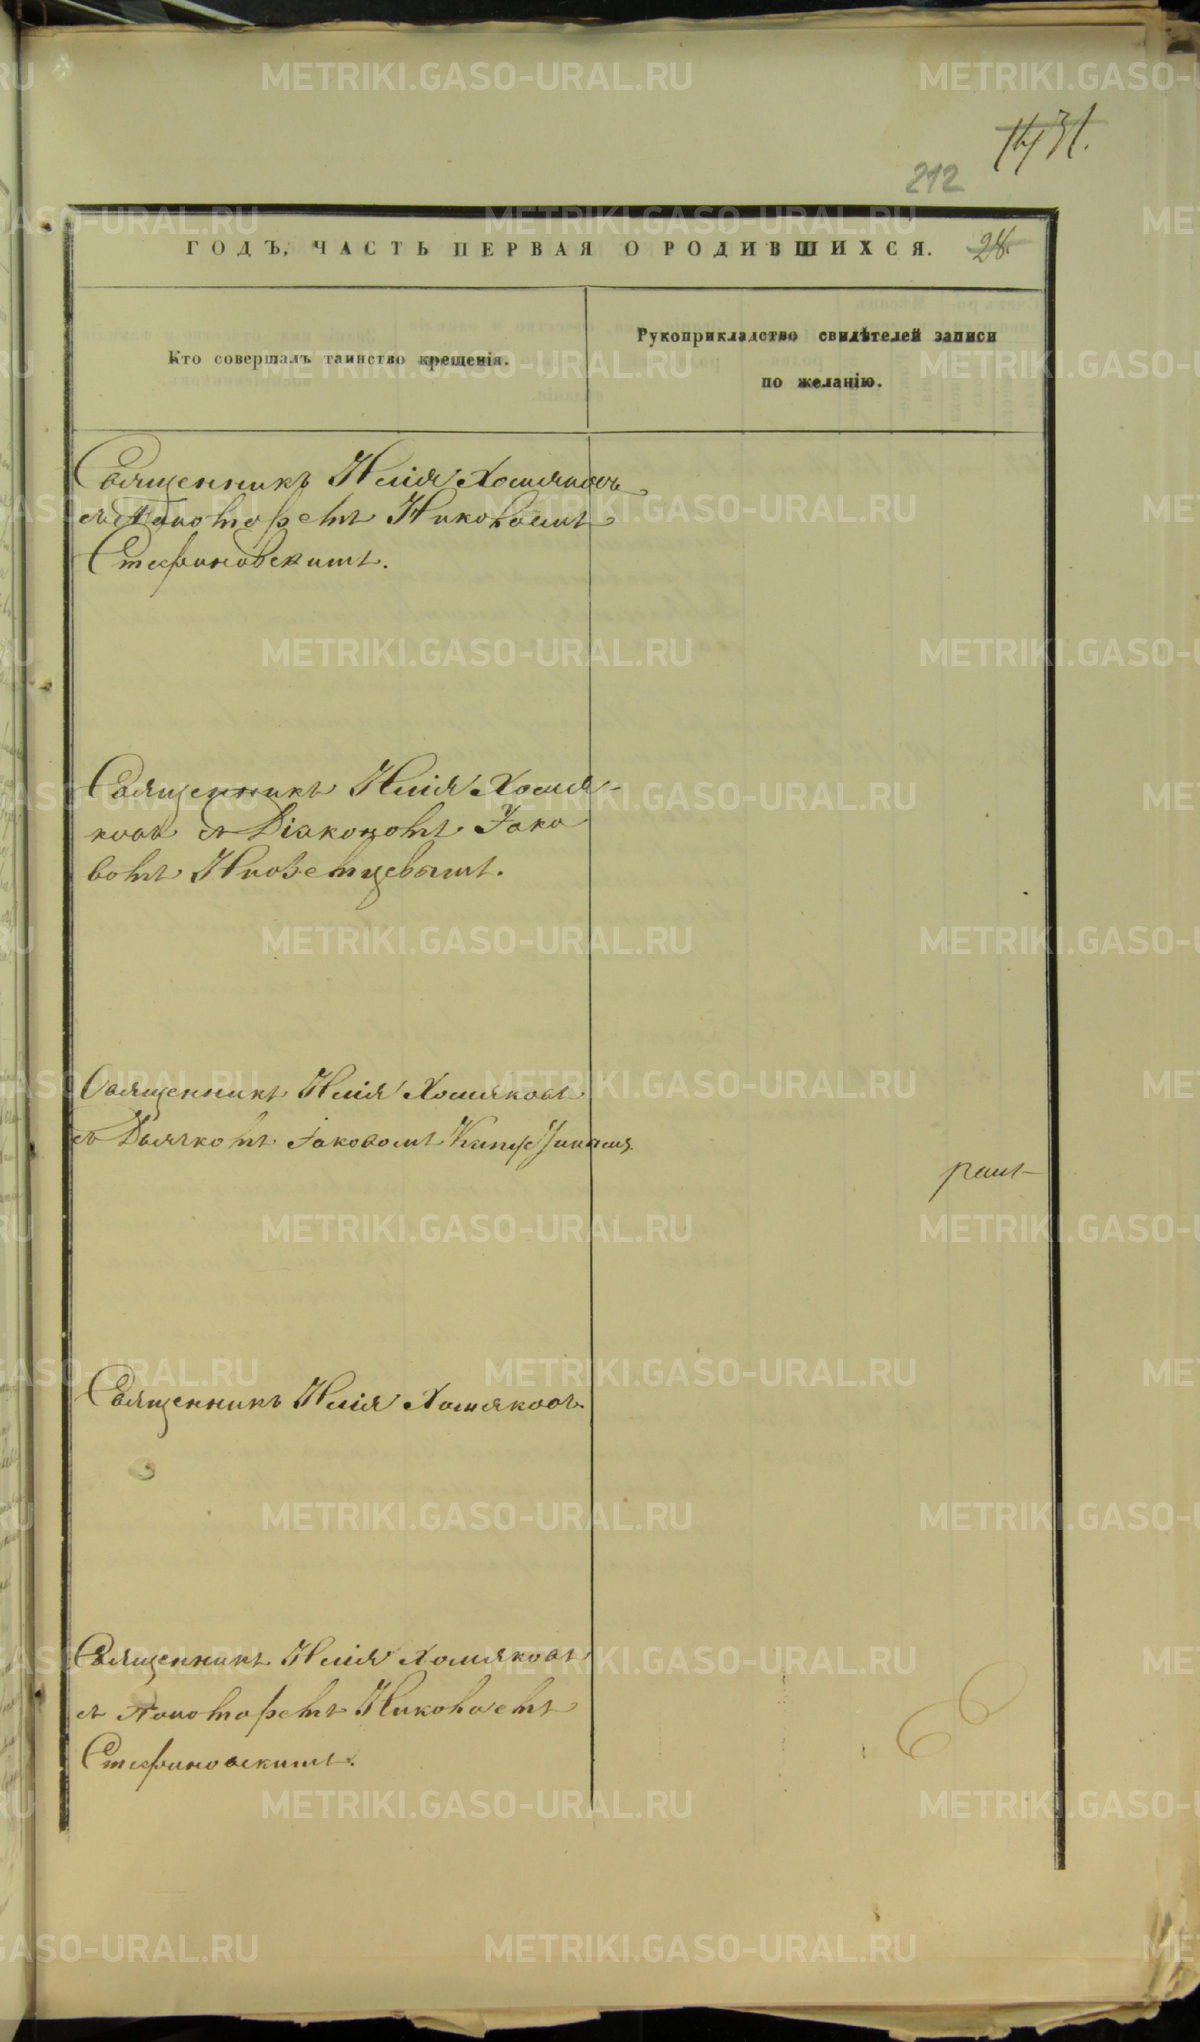 212
ГОДЪ, ЧАСТЬ ПЕРВАЯ О РОДИВШИХСЯ. 28.
Кто совершалъ таинство крещенія.
Рукоприкладство свидѣтелей записи
по желанію.
Священникъ Илія Хомяковъ
съ Пономаремъ Николаемъ
Стефановскимъ.
Священникъ Илія Хомя-
ковъ съ Діакономъ Іако
вомъ
Священникъ Илія Хомяковъ
съ Дьячкомъ Іаковомъ
Священникъ Илія Хомяковъ.
Священникъ Илія Хомяковъ
съ Пономаремъ Николаемъ
Стефановскимъ.
METRIKI.GASO-URAL.RU